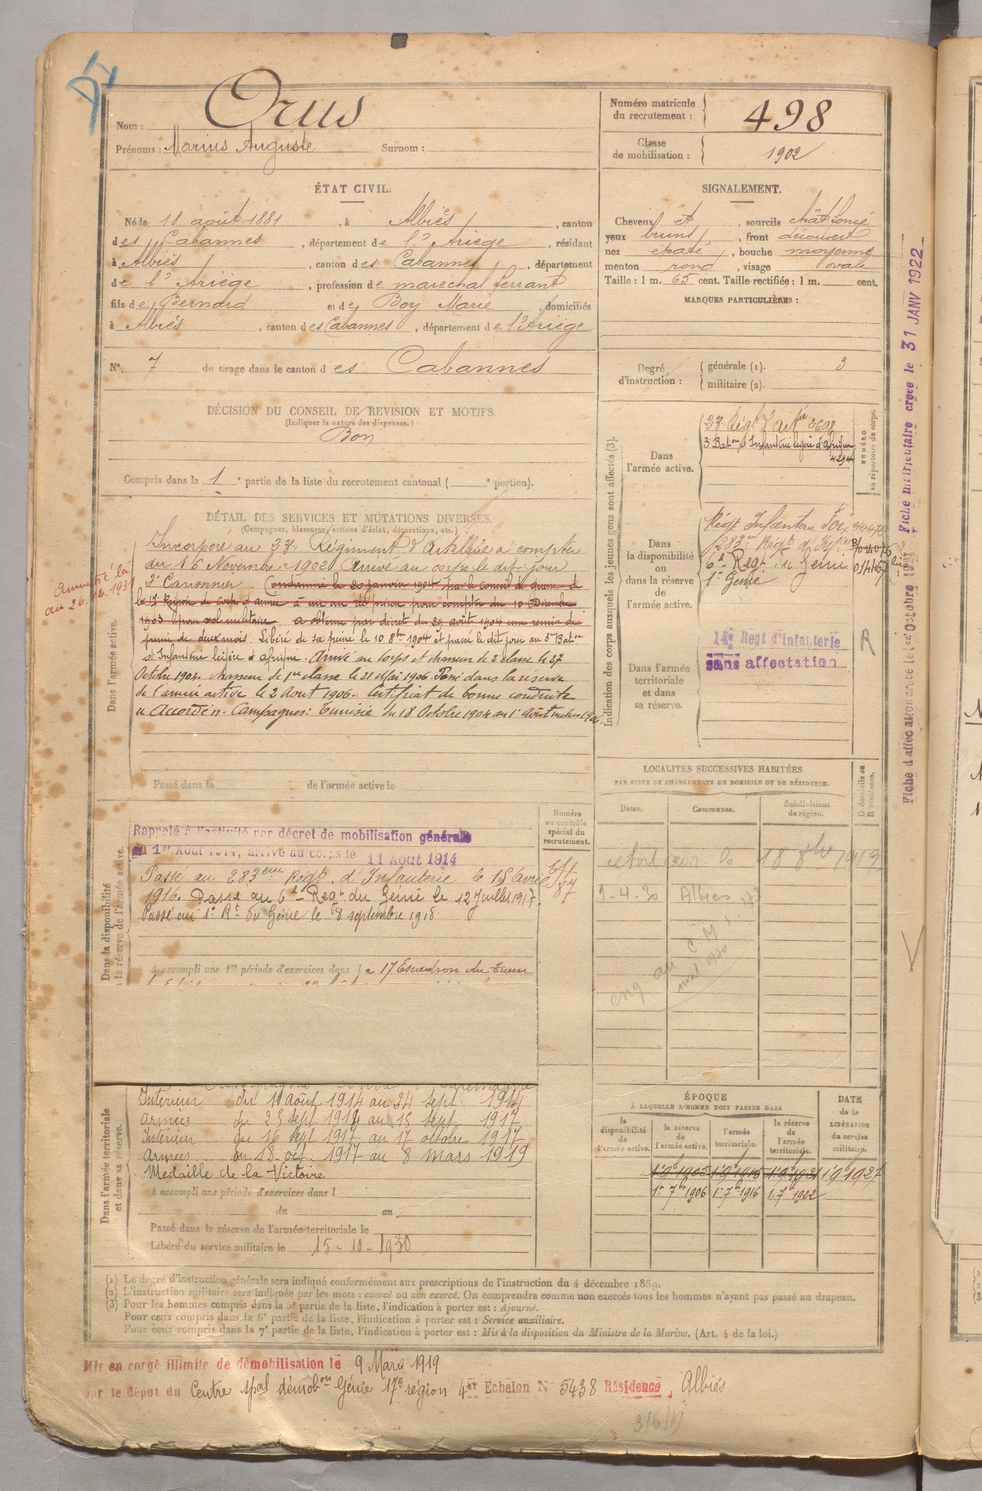 Nom : Orus
Prénoms : Marius Auguste Surnom :
Numéro matricule du recrutement : 498
Classe de mobilisation : 1902
ÉTAT CIVIL.
Né le 18 août 1881, à Albiès, canton
des Cabannes, département de l'Ariège, résidant
à Albiès, canton des Cabannes, département
de l'Ariège, profession de maréchal ferrant
fils de Bernard et de Boy Marie, domiciliés
à Albiès, canton des Cabannes, département de l'Ariège
SIGNALEMENT.
Cheveux et, sourcils chât foncé
yeux bruns, front découvert
nez épaté, bouche moyenne
menton rond, visage ovale
Taille : 1 m. 65 cent. Taille rectifiée : 1 m. cent.
MARQUES PARTICULIÈRES :
N° 7 de tirage dans le canton des Cabannes
Degré d'instruction : générale (1). 3
militaire (2).
DÉCISION DU CONSEIL DE RÉVISION ET MOTIFS.
(Indiquer la nature des dispenses.)
Bon
Compris dans la 1e partie de la liste du recrutement cantonal ( e portion).
DÉTAIL DES SERVICES ET MUTATIONS DIVERSES.
(Campagnes, blessures, actions d'éclat, décorations, etc.)
Dans l'armée active.
Incorporé au 23e Régiment d'Artillerie à compter
du 16 Novembre 1902. Arrivé au corps le dit jour
2e Canonnier. Condamné le 20 janvier 1904 par le conseil de guerre de
la 17e Région de corps d'armée à un an de prison pour compter du 10 Décembre
1903 pour vol militaire. a obtenu par décret du 29 août 1904 une remise de
peine de deux mois. Libéré de sa peine le 10 8bre 1904 et passé le dit jour au 3e Baton
d'Infanterie légère d'Afrique. Arrivé au corps et chasseur de 2e classe le 27
Octobre 1904. chasseur de 1re classe le 21 Mai 1906. Passé dans la réserve
de l'armée active le 2 Aout 1906. Certificat de bonne conduite
Accordé. Campagnes: Tunisie du 18 Octobre 1904 au 1er Août 1906.
Passé dans la de l'armée active le
Indication des corps auxquels les jeunes gens sont affectés (3).
NUMÉRO au répertoire du corps.
Dans l'armée active.
23e Régt d'Artie 2608
3e Baton d'Infanterie légère d'Afrique
4294
Dans la disponibilité ou dans la réserve de l'armée active.
Régt Infanterie Foix
283me Régt d'Infie
6e Regt du Génie
1er Génie
Dans l'armée territoriale et dans sa réserve.
Régt d'Infanterie
sans affectation
R
Fiche matriculaire créée le 31 JANV 1922
LOCALITÉS SUCCESSIVES HABITÉES
PAR SUITE DE CHANGEMENTS DE DOMICILE OU DE RÉSIDENCE.
Dates. Communes. Subdivisions de région.
18 8bre 1919
1-4-30 Albies
Dans la disponibilité
la réserve de l'armée active.
Numéro au contrôle spécial du recrutement.
Rappelé à l'activité par décret de mobilisation générale
du 1er Août 1914, arrivé au corps le 11 Août 1914
Passé au 283eme Régt d'Infanterie le 15 avril
1916. Passé au 6e Regt du Génie le 12 Juillet 1917.
Passé au 1er Rt du Génie le 8 septembre 1918.
A accompli une 1re période d'exercices dans le 17 Escadron du Train
Dans l'armée territoriale et dans sa réserve.
Intérieur du 11 Août 1914 au 24 Sept. 1914
Armées du 25 Sept 1914 au 15 Sept 1917
Intérieur du 16 Sept 1917 au 17 octobre 1917
Armées du 18 oct 1917 au 8 mars 1919
Médaille de la Victoire
A accompli une période d'exercices dans l
du au
Passé dans la réserve de l'armée territoriale le
Libéré du service militaire le 15-10-1930
ÉPOQUE
À LAQUELLE L'HOMME DOIT PASSER DANS
la disponibilité de l'armée active. la réserve de l'armée active. l'armée territoriale. la réserve de l'armée territoriale.
DATE de la LIBÉRATION du service militaire.
1er 9 1905 1er 9 1915 1er 9 1921 1er 9 1927
1er 7b 1906 1er 7b 1916 1er 7b 1922
(1) Le degré d'instruction générale sera indiqué conformément aux prescriptions de l'instruction du 4 décembre 1889.
(2) L'instruction militaire sera indiquée par les mots : exercé ou non exercé. On comprendra comme non exercés tous les hommes n'ayant pas passé au drapeau.
(3) Pour les hommes compris dans la 5e partie de la liste, l'indication à porter est : Ajourné.
Pour ceux compris dans la 6e partie de la liste, l'indication à porter est : Service auxiliaire.
Pour ceux compris dans la 7e partie de la liste, l'indication à porter est : Mis à la disposition du Ministre de la Marine. (Art. 4 de la loi.)
Mis en congé illimité de démobilisation le 9 Mars 1919
par le dépôt du Centre spal démobon Génie 17e région 4e Echelon N° 5438 Résidence, Albiès